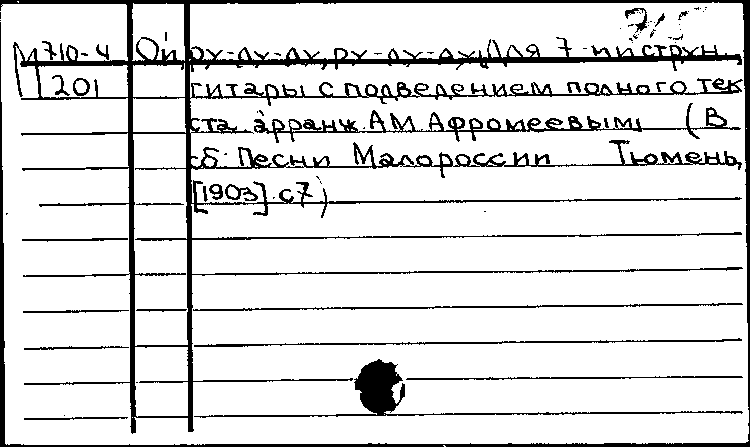 7/5
М 710-4 Ой, ру-ду-ду, ру-ду-ду, Для 7-ми струн.
201 гитары с подведением полного тек
ста аранж АМ Афромеевым, (В
сб: Песни Малороссии Тюмень,
[1903] с7)